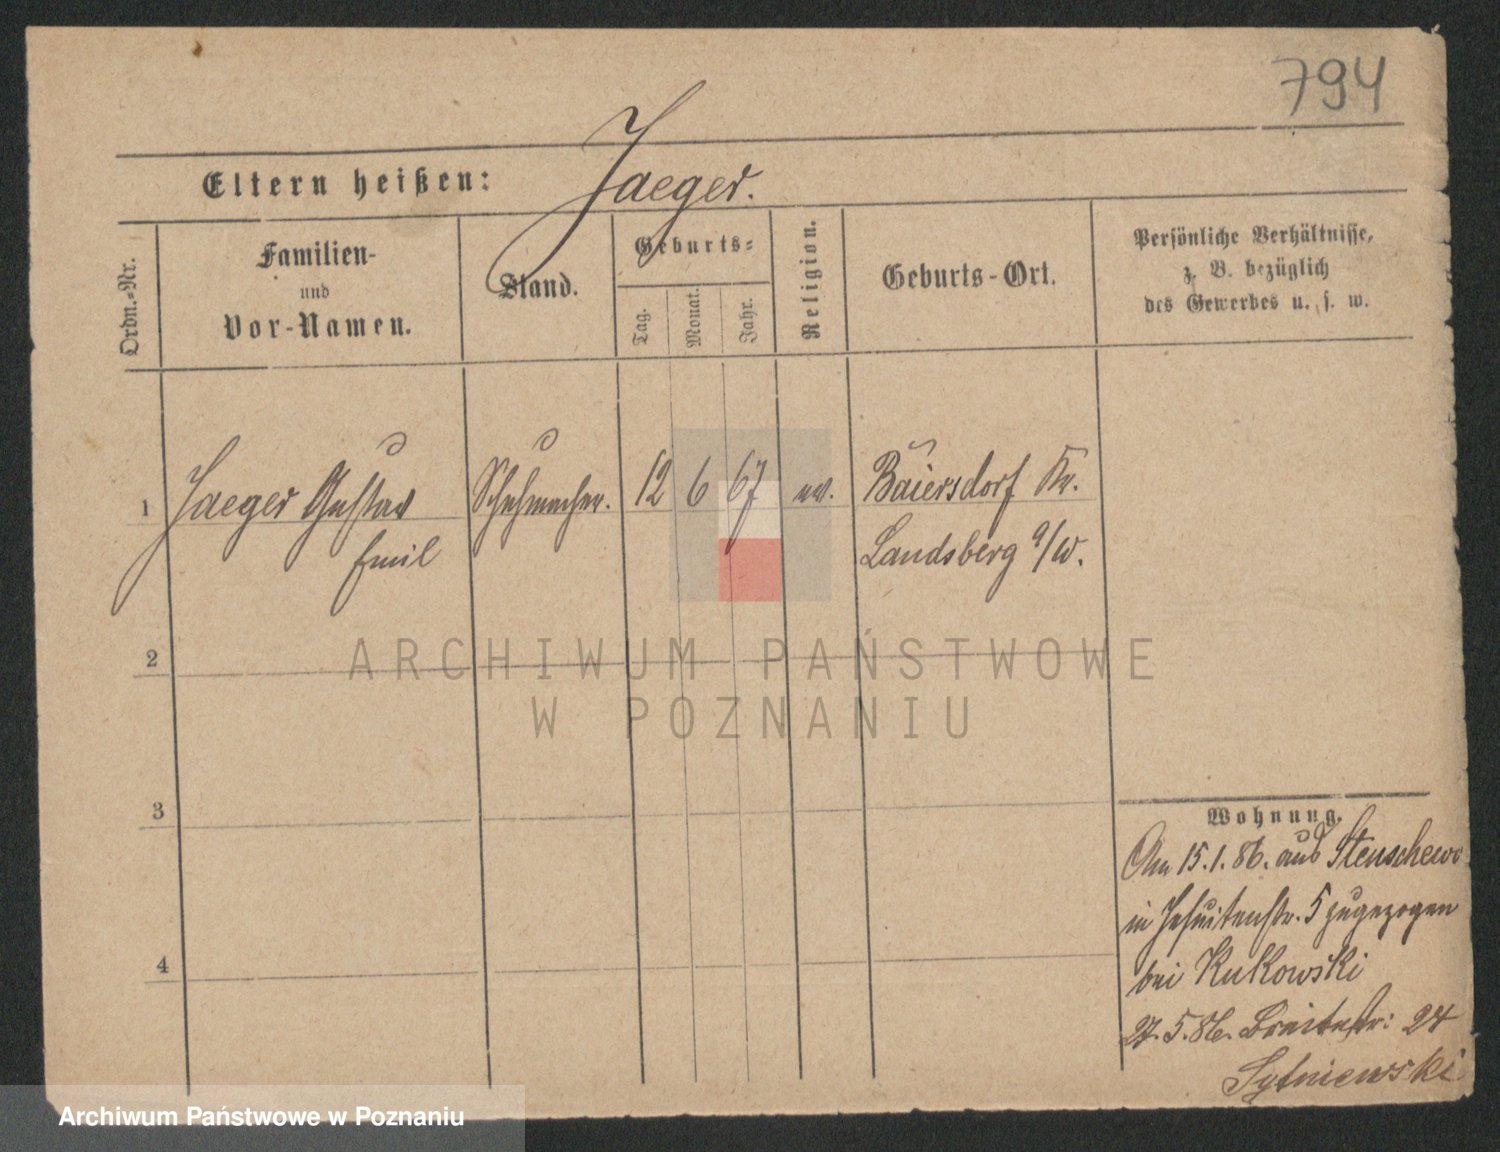 794
Eltern heißen: Jaeger.
Ordn.-Nr.
Familien-
und
Vor-Namen.
Stand.
Geburts-
Tag.
Monat.
Jahr.
Religion.
Geburts-Ort.
Persönliche Verhältnisse,
z. B. bezüglich
des Gewerbes u. s. w.
1 Jaeger Gustav Schuhmacher. 12 6 67 ev. Baiersdorf Kr.
Emil Landsberg a/W.
2
3
4
ARCHIWUM PAŃSTWOWE
W POZNANIU
Wohnung.
Am 15.1.86. aus Stenschewo
in Jesuitenstr. 5 zugezogen
bei Kukowski
27.5.86. Breitestr: 24
Sytniewski
Archiwum Państwowe w Poznaniu